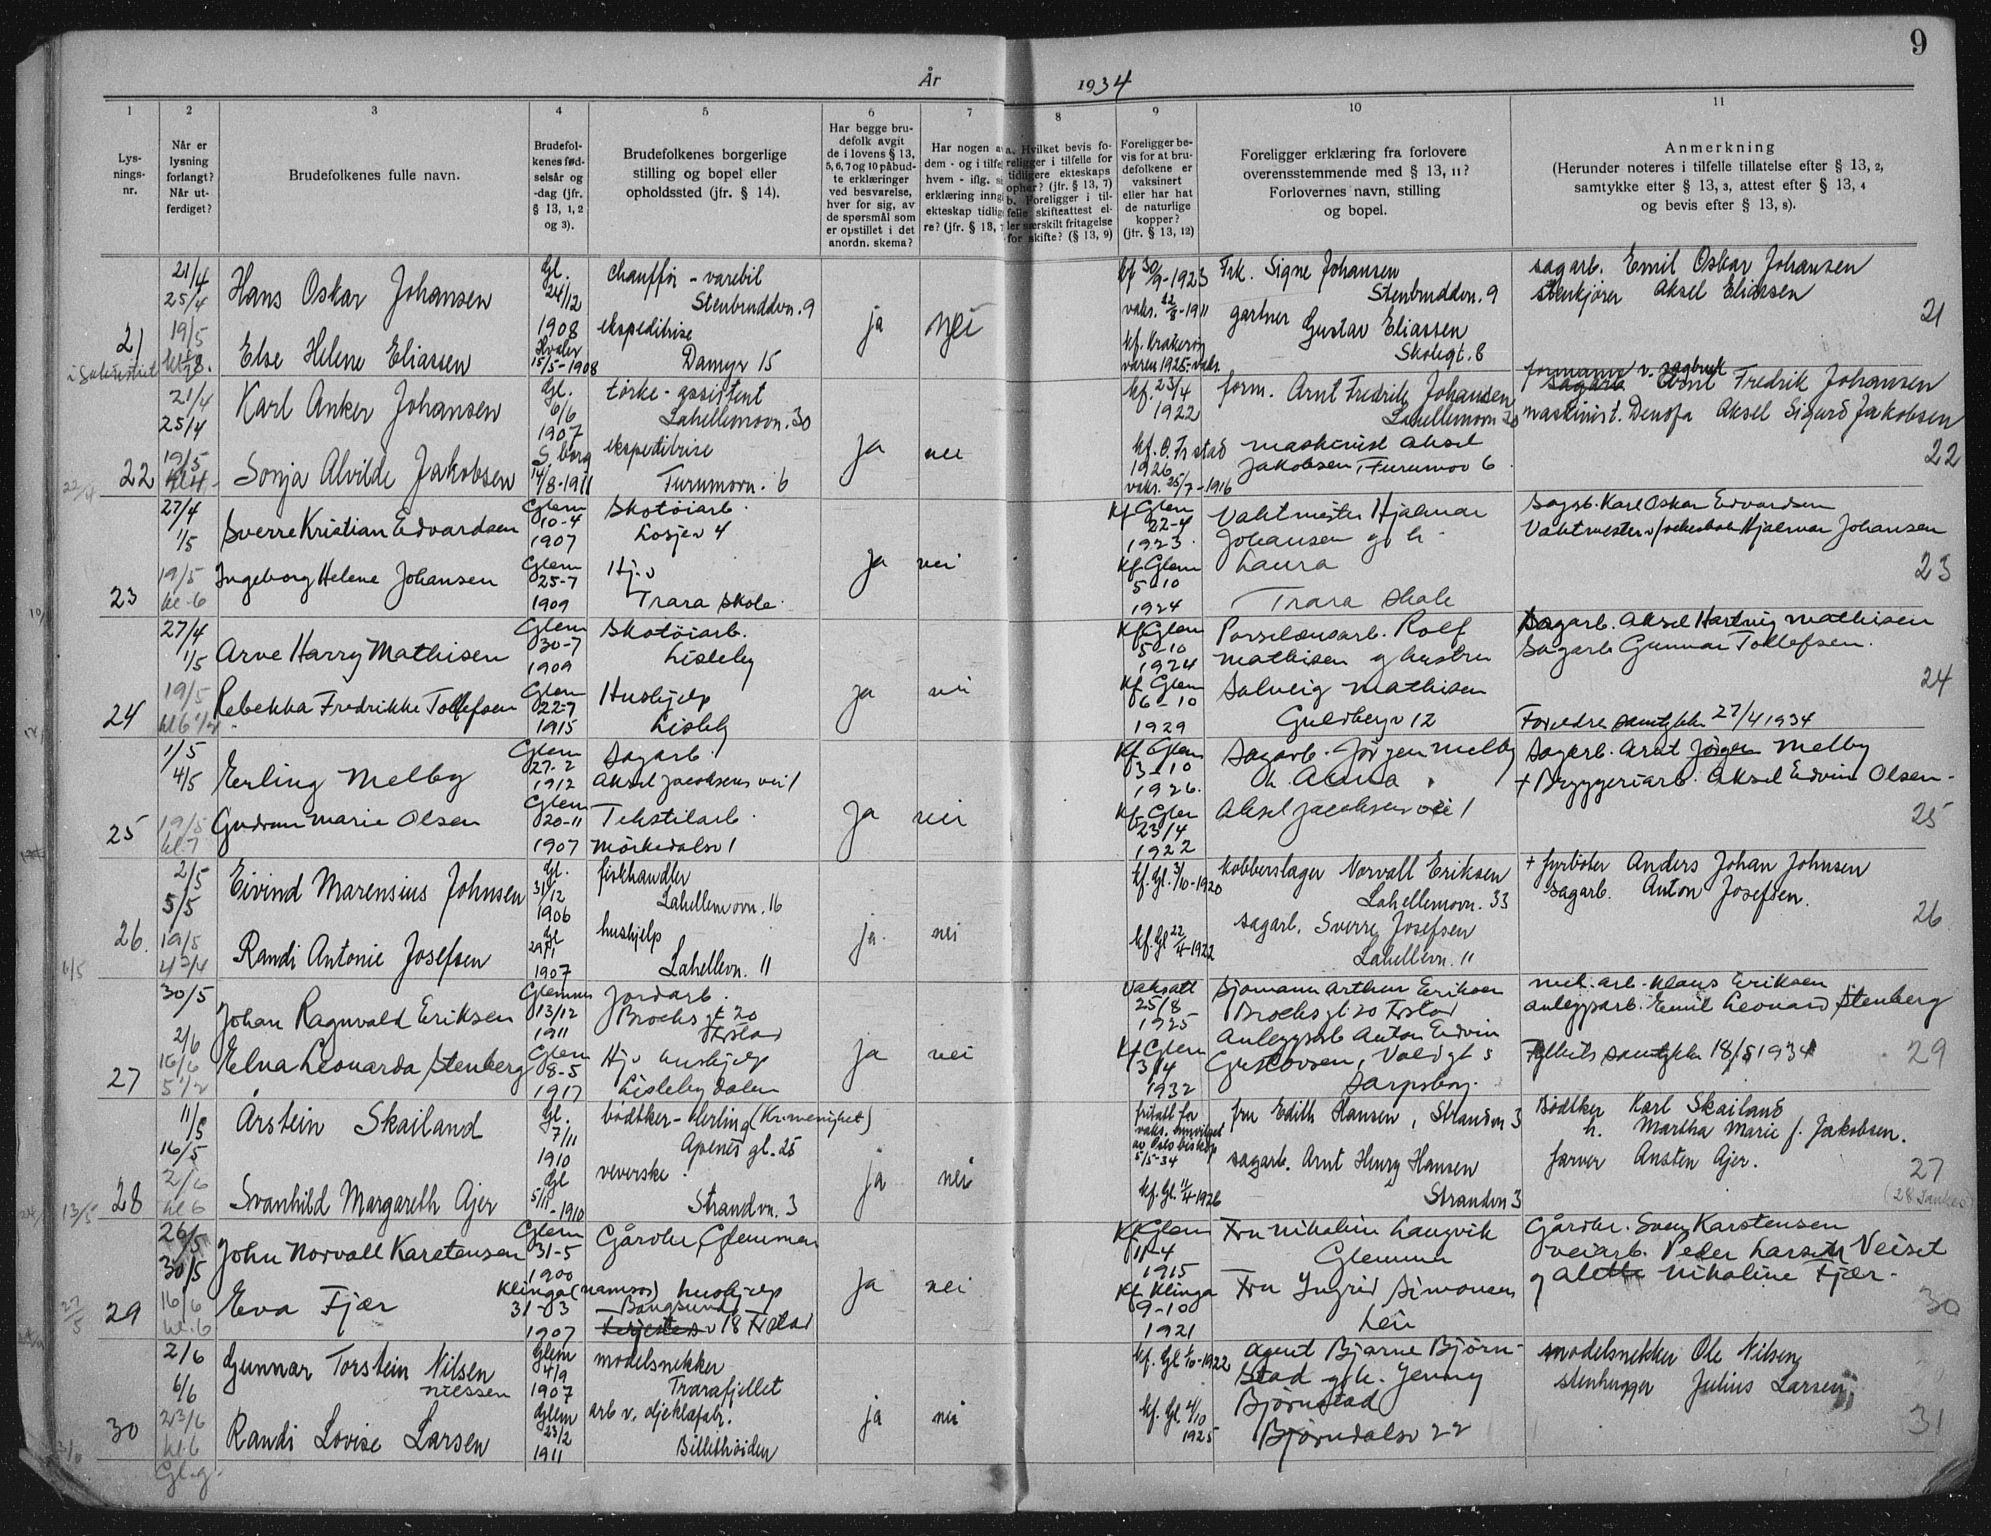 9
År 1934
1 2 3 4 5 6 7 8 9 10 11
Lys-
nings-
nr.
Når er
lysning
forlangt?
Når ut-
ferdiget?
Brudefolkenes fulle navn.
Brudefol-
kenes fød-
selsår og
-dag (jfr.
§ 13, 1, 2
og 3).
Brudefolkenes borgerlige
stilling og bopel eller
opholdssted (jfr. § 14).
Har begge bru-
defolk avgit
de i lovens § 13,
5, 6, 7 og 10 påbud-
te erklæringer
ved besvarelse,
hver for sig, av
de spørsmål som
er opstillet i det
anordn. skema?
Har nogen a
dem - og i tilfe
hvem - iflg. s
erklæring inng
ekteskap tidlig
re? (jfr. § 13,
a. Hvilket bevis fo-
religger i tilfelle for
tidligere ekteskaps
ophør? (jfr. § 13, 7)
b. Foreligger i til-
felle skifteattest el-
ler særskilt fritagelse
for skifte? (§ 13, 9)
Foreligger be-
vis for at bru-
defolkene er
vaksinert
eller har hat
de naturlige
kopper?
(jfr. § 13, 12)
Foreligger erklæring fra forlovere
overensstemmende med § 13, 11?
Forlovernes navn, stilling
og bopel.
Anmerkning
(Herunder noteres i tilfelle tillatelse efter § 13, 2,
samtykke etter § 13, 3, attest efter § 13, 4
og bevis efter § 13, 8).
21
21/4
25/4
19/5
Hans Oskar Johansen
Else Helene Eliassen
Gl.
24/12
1908
Hvaler
15/5-1908
chauffør - varebil
Stenbruddvn. 9
ekspeditrise
Damyr 15
ja nei
kf 30/9-1923
vaks. 22/8-1911
kf. Kråkerøy
våren 1925-vaks.
Frk. Signe Johansen
Stenbruddvn. 9
gartner Gustav Eliassen
Skolegt. 8
sagarb. Emil Oskar Johansen
stenkjører Aksel Eliassen
21
22
21/4
25/4
19/5
Karl Anker Johansen
Sonja Alvilde Jakobsen
Gl.
6/6
1907
S borg
14/8-1911
tørke-assistent
Lahellemovn. 30
ekspeditrise
Furumovn. 6
ja nei
kf. 23/4
1922
kf. Ø. Fr stad
1926
vaks. 25/7-1916
form. Arnt Fredrik Johansen
Lahellemovn 30
maskinist Aksel
Jakobsen, Furumov 6
formann v. sagbruk
sagarb Arnt Fredrik Johansen
maskinist. Denofa Aksel Sigurd Jakobsen
22
23
27/4
1/5
19/5
kl-6
Sverre Kristian Edvardsen
Ingeborg Helene Johansen
Glem
10-4
1907
Glem
25-7
1909
Skotøiarb.
Losjev 4
Hj.v
Trara skole.
ja nei
Kf Glem
22-4
1923.
Kf Glem
5-10
1924
Vaktmester Hjalmar
Johansen g h
Laura
Trara skole
Sagb. Karl Oskar Edvardsen
Vaktmester v/ Hjalmar Johansen
23
24
27/4
1/5
19/5
kl 6 1/2
Arve Harry Mathisen
Rebekka Fredrikke Tollefsen
Glem
30-7
1909
Glem
22-7
1915
Skotøiarb.
Lisleby
Hushjelp
Lisleby
ja nei
Kf Glem
5-10
1924
Kf. Glem
6-10
1929
Porselænsarb. Rolf
Mathisen g hustru
Solveig Mathisen
Guldbergv 12
Sagarb. Aksel Hartvig Mathisen
Sagarb Gunnar Tollefsen.
Forældre samtykke 27/4 1934
24
25
1/5
4/5
19/5
kl 7
Erling Melby
Gudrun Marie Olsen
Glem
27-2
1912
Glem
20-11
1907
Sagarb.
Aksel Jacobsens vei 1
Tekstilarb.
Mørkedalsv 1
ja nei
Kf. Glem
3-10
1926.
Kf. Glem
23/4
1922
Sagarb. Jørgen Melby
h. Anna
Aksel Jacobsens vei 1
Sagarb. Arnt Jørgen Melby
+ Bryggeriarb. Aksel Edvin Olsen
25
26.
2/5
5/5
19/5
4 3/4
Eivind Marensius Johnsen
Randi Antonie Josefsen
Gl.
31/12
1906
Gl
29/1
1907
fiskhandler
Lahellemovn. 16
hushjelp
Lahellevn. 11
ja. nei
kf. Gl. 3/10-1920
kf. Gl 22/4-1922
kobberslager Norvall Eriksen
Lahellemovn. 33
sagarb. Sverre Josefsen
Lahellevn. 11
+ fyrbøter Anders Johan Johnsen
sagarb. Anton Josefsen.
26
27
30/5
2/6
16/6
5 1/2
Johan Ragnvald Eriksen
Elna Leonarda Stenberg
Glemmen
13/12
1911
Glem
8-5
1917
Jordarb.
Brochs gt 20
Frstad
Hj. v hushjelp
Lislebydalen
ja nei
Vaksatt
25/8
1925
Kf Glem
3/4
1932
Sjømann Arthur Eriksen
Brochs gt. 20 Frstad
Anleggsarb Anton Edvin
Gustavsen, Voldgt 5
Sarpsborg.
mek. arb. Klaus Eriksen
anleggsarb. Emil Leonard Stenberg
Fylkets samtykke 18/5 1934
29
28
11/5
16/5
2/6
kl 6
Årstein Skailand
Svanhild Margareth Ajer
Gl.
7/11
1910
Gl
5/11-1910
bødtker-Herling (Kr. menighet)
Apenes gt. 25
veverske
Strandvn. 3
ja nei
fritatt for
vaks. innvilget
av Oslo biskop
5/5-34
kf. Gl. 11/4-1926
fru Edith Hansen, Strandvn 3
sagarb. Arnt Henry Hansen
Strandvn 3
Bødtker Karl Skailand
h. Martha Marie f. Jakobsen.
farver Ansten Ajer.
27
29
26/5
30/5
16/6
kl. 6
John Norvall Karstensen
Eva Fjær
Glem
31-5
1900
Klinga (Namsos)
31-3
1907
Gårdbr. Glemmen
hushjelp
Bangsund
v 18 Frstad
ja nei
Kf Glem
11-4
1915
Kf Klinga
9-10
1921
Fru Nikoline Langvik
Glemmen
Fru Ingrid Simonsen
Leie
Gårdbr. Sven Karstensen
veiarb. Peder Larsen Veiset
g Alette Nikoline Fjær
30
30
2/6
6/6
23/6
kl. 6
Gl. g.
Gunnar Torstein Nilsen
Nilssen
Randi Lovise Larsen
Glem
4/9
1907
Glem
23/2
1911
modelsnekker
Trarafjellet
arb v. oljeklæfabr.
Billethøiden
ja nei
kf. Gl 1/10-1922
kf. Gl 4/10
1925
agent Bjarne Bjørn-
stad g h. Jenny
Bjørnstad
Bjørndalsv 22
modelsnekker Ole Nilsen
stenhugger Julius Larsen
31